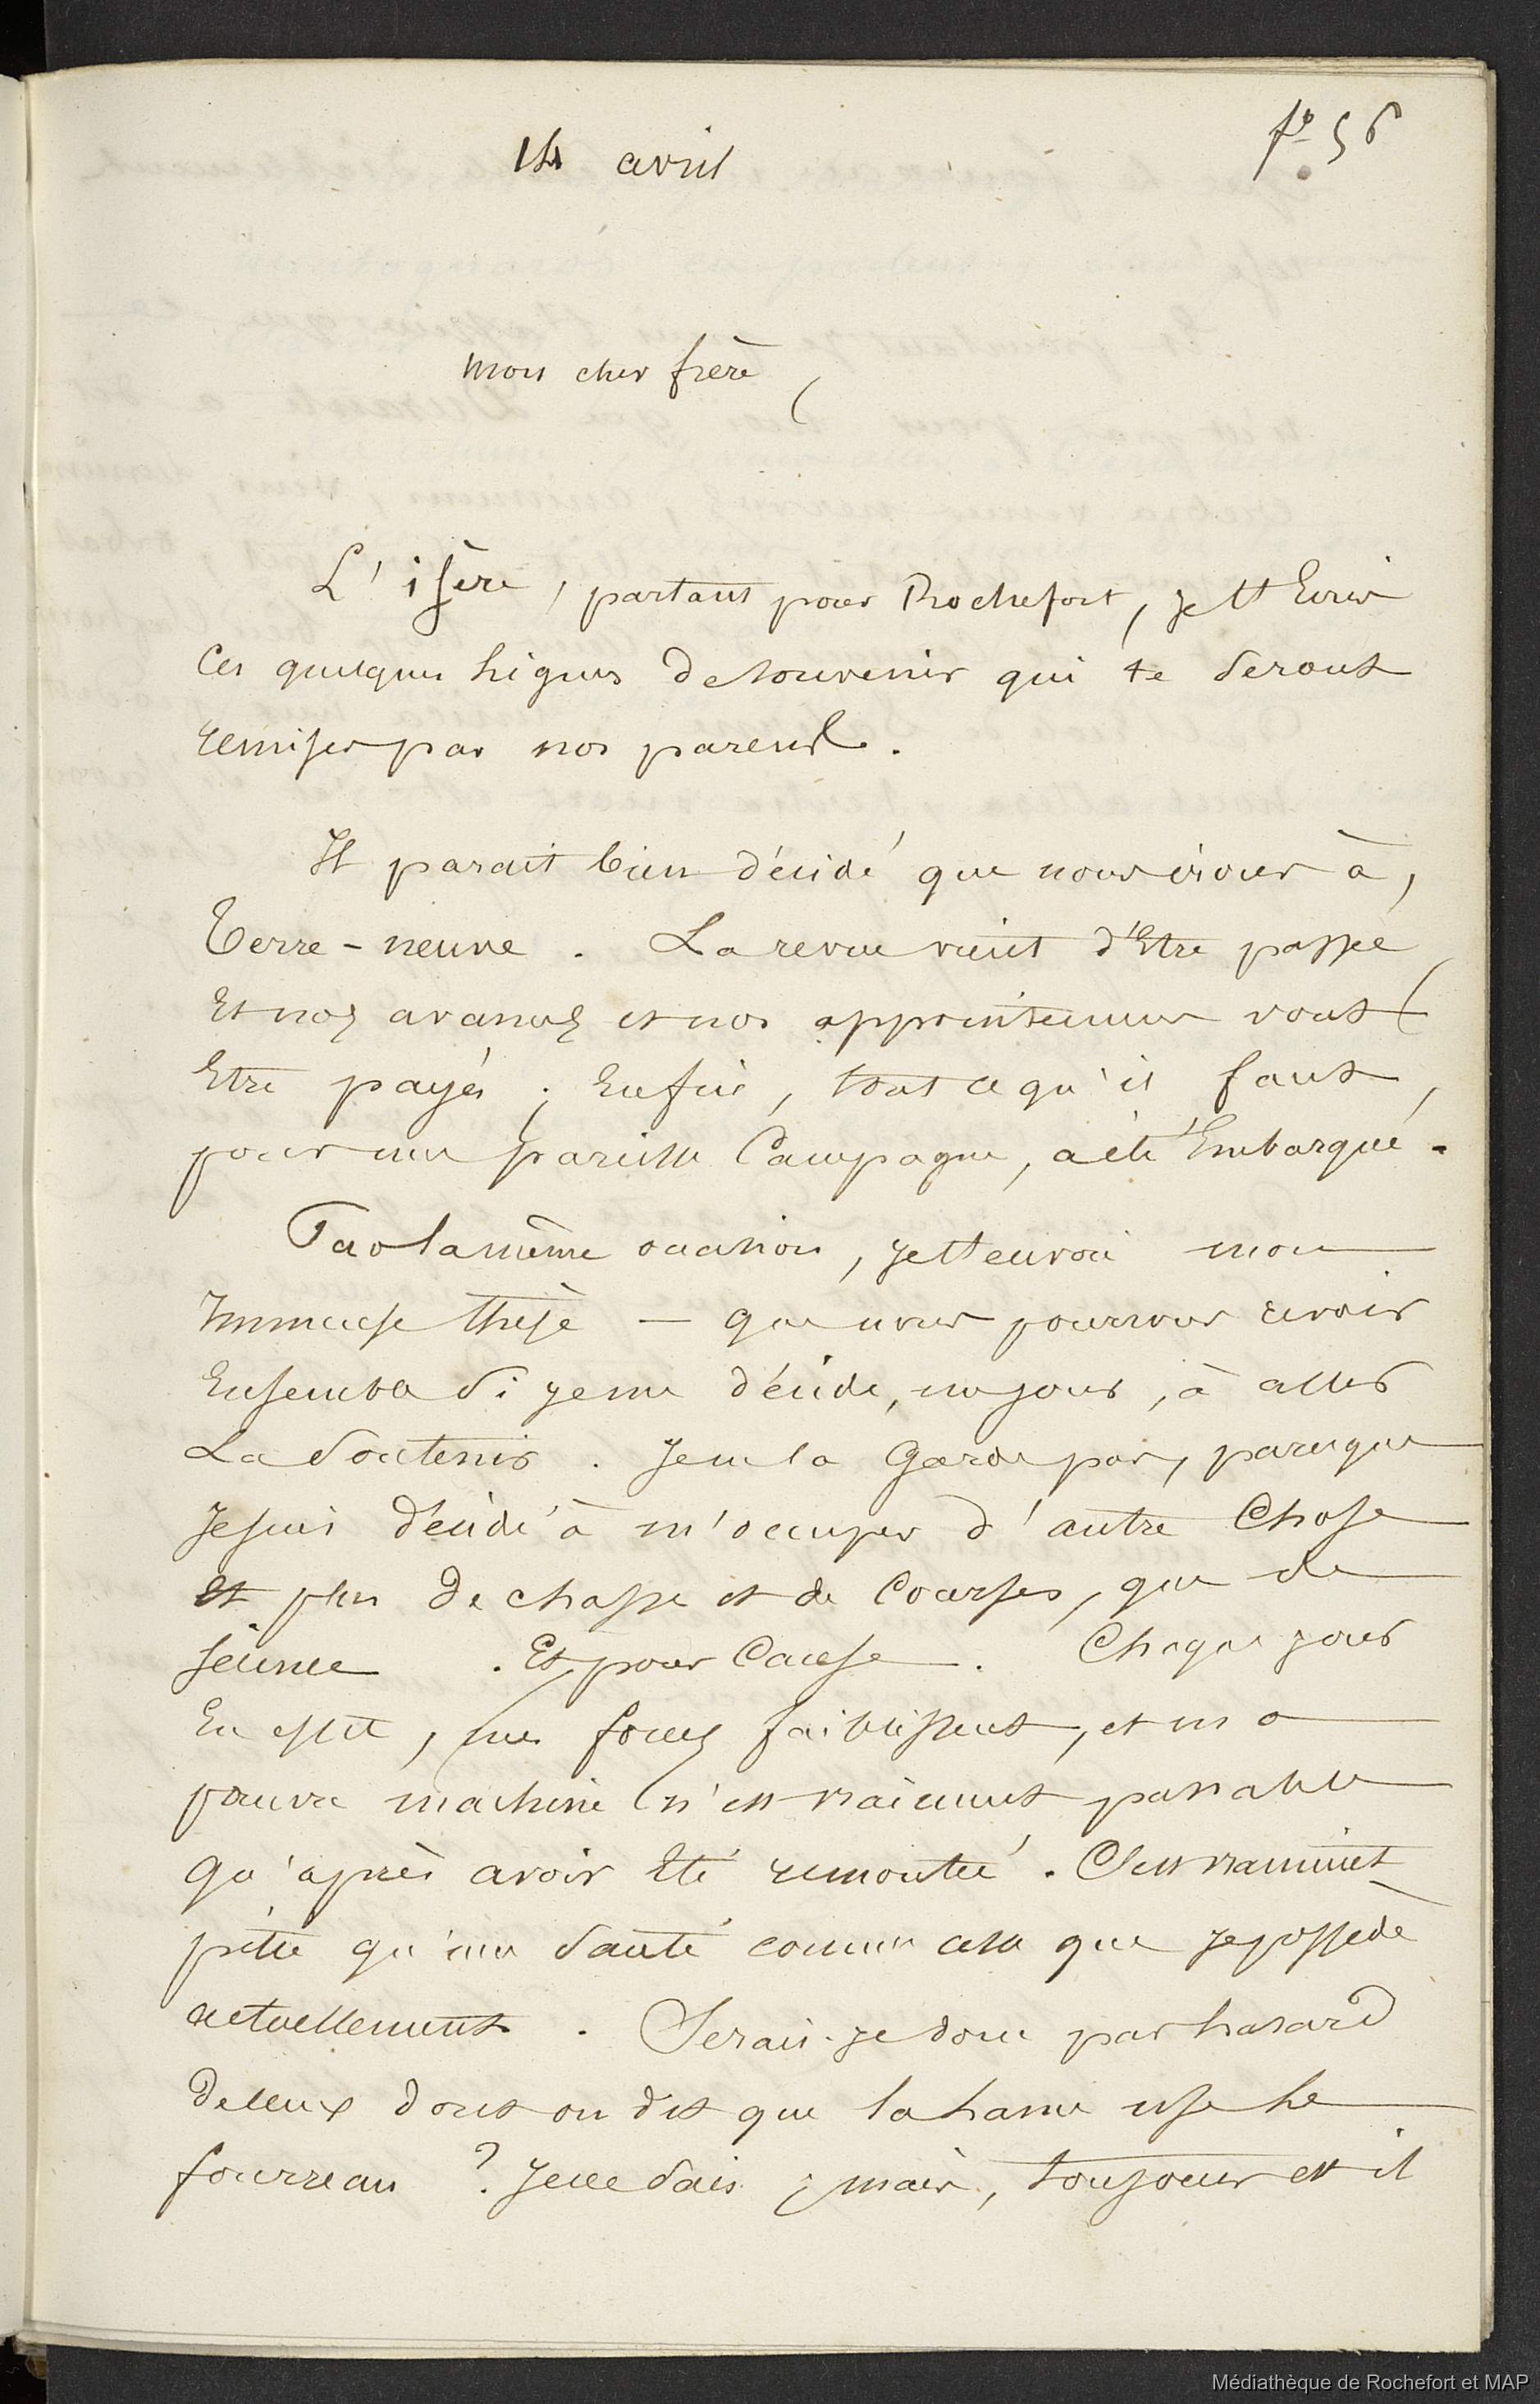 fo 56
14 avril
Mon cher frère,
L'isère, partant pour Rochefort, je t'Ecris
Ces quelques lignes de souvenir qui te seront
remises par nos parents.
Il parait bien décidé que nous irons à,
Terre-neuve. La revue vient d'Etre passée
Et nos avances et nos appointemens vont
Etre payés ; Enfin, tout ce qu'il faut,
pour une pareille Campagne, a été Embarqué.
Par la même occasion, je t'envoi mon
Immense thèse — que nous pourrons revoir
Ensemble si je me décide, un jour, à aller
La soutenir. Je ne la Garde pas, parceque
Je suis décidé à m'occuper d'autre Chose
et plus de chasse et de Courses, que de
science. Et pour Cause. Chaque jour
En effet, mes forces faiblissent, et ma
pauvre machine n'est vraiement passable
qu'après avoir Eté remontée. C'est vraiment
pitié qu'une santé comme celle que je possède
actuellement. Serais-je donc par hasard
de ceux dont on dit que la lame use le
fourreau ? Je ne sais ; mais, toujours est il
Médiathèque de Rochefort et MAP